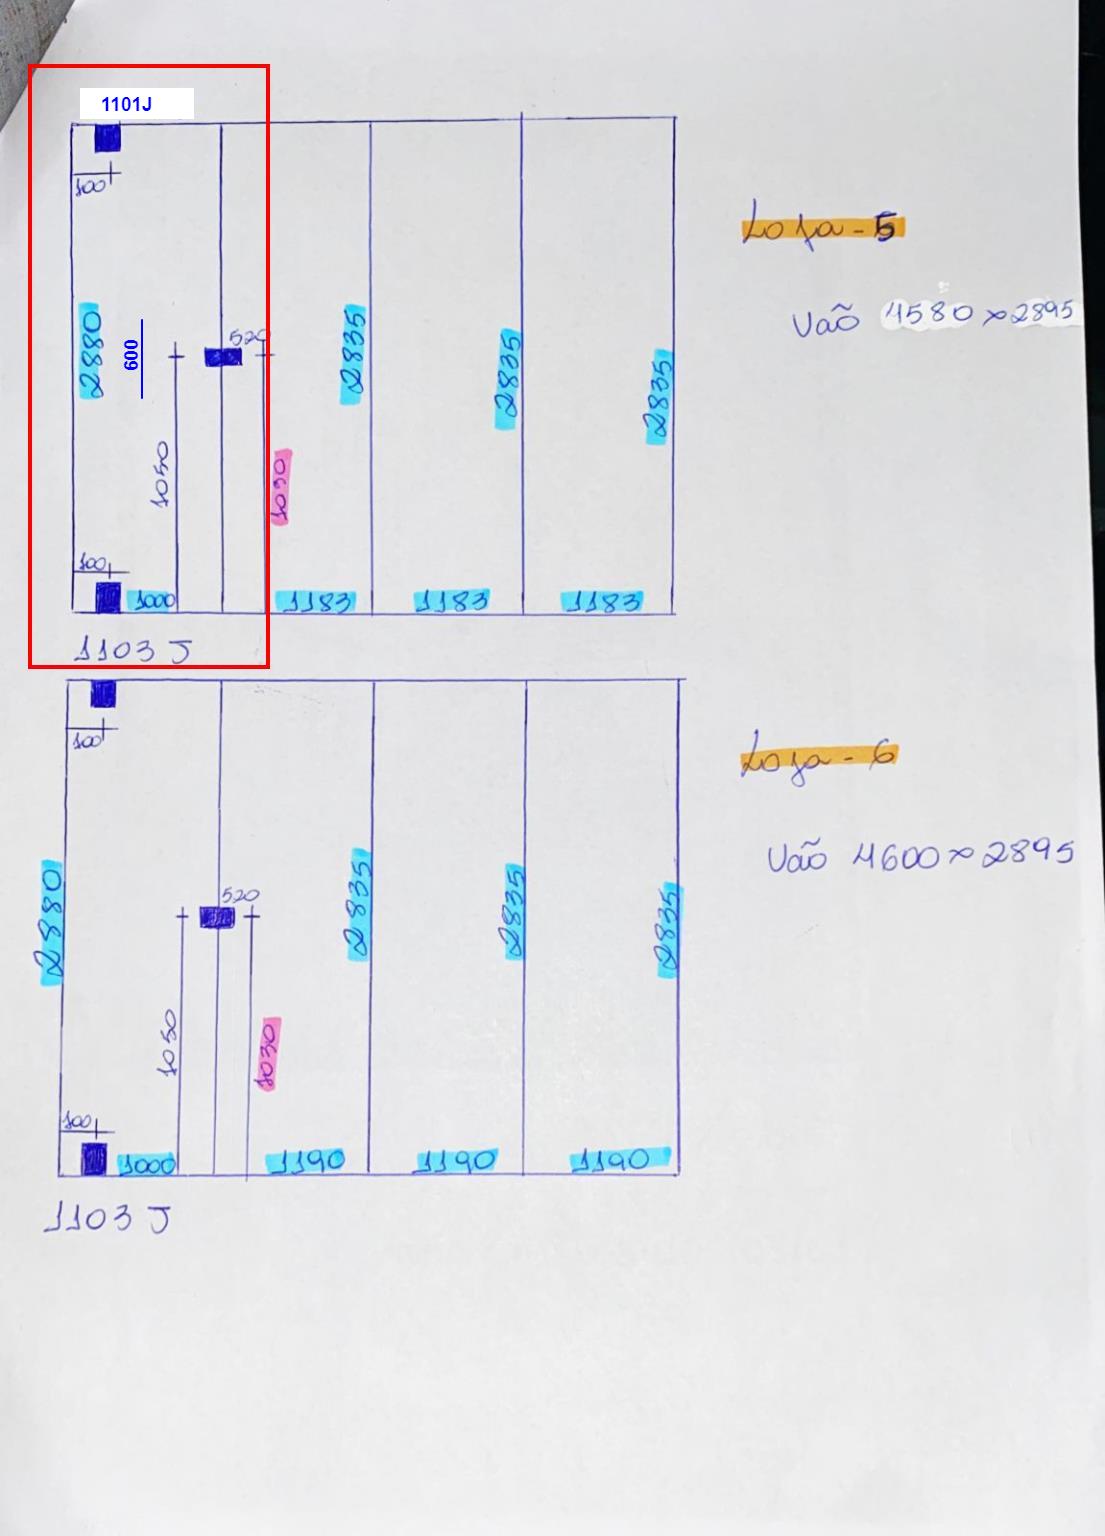 1101J
100
Loja - 5
Vão 4580 x 2895
2880
600
520
2835
2835
2835
1050
1030
100
1000
1183
1183
1183
1103 J
100
Loja - 6
Vão 4600 x 2895
2880
520
2835
2835
2835
1050
1030
100
1000
1190
1190
1190
1103 J